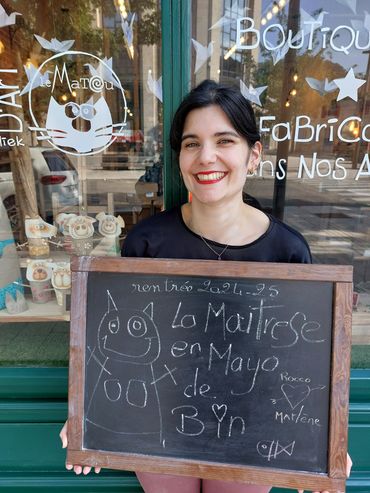 Le MaT@u
BOUTIQU
FaBRiCa
ns Nos A
rentrée 2024-25
La Maîtrese
en Mayo
de
Bin
Rocco
Marlène